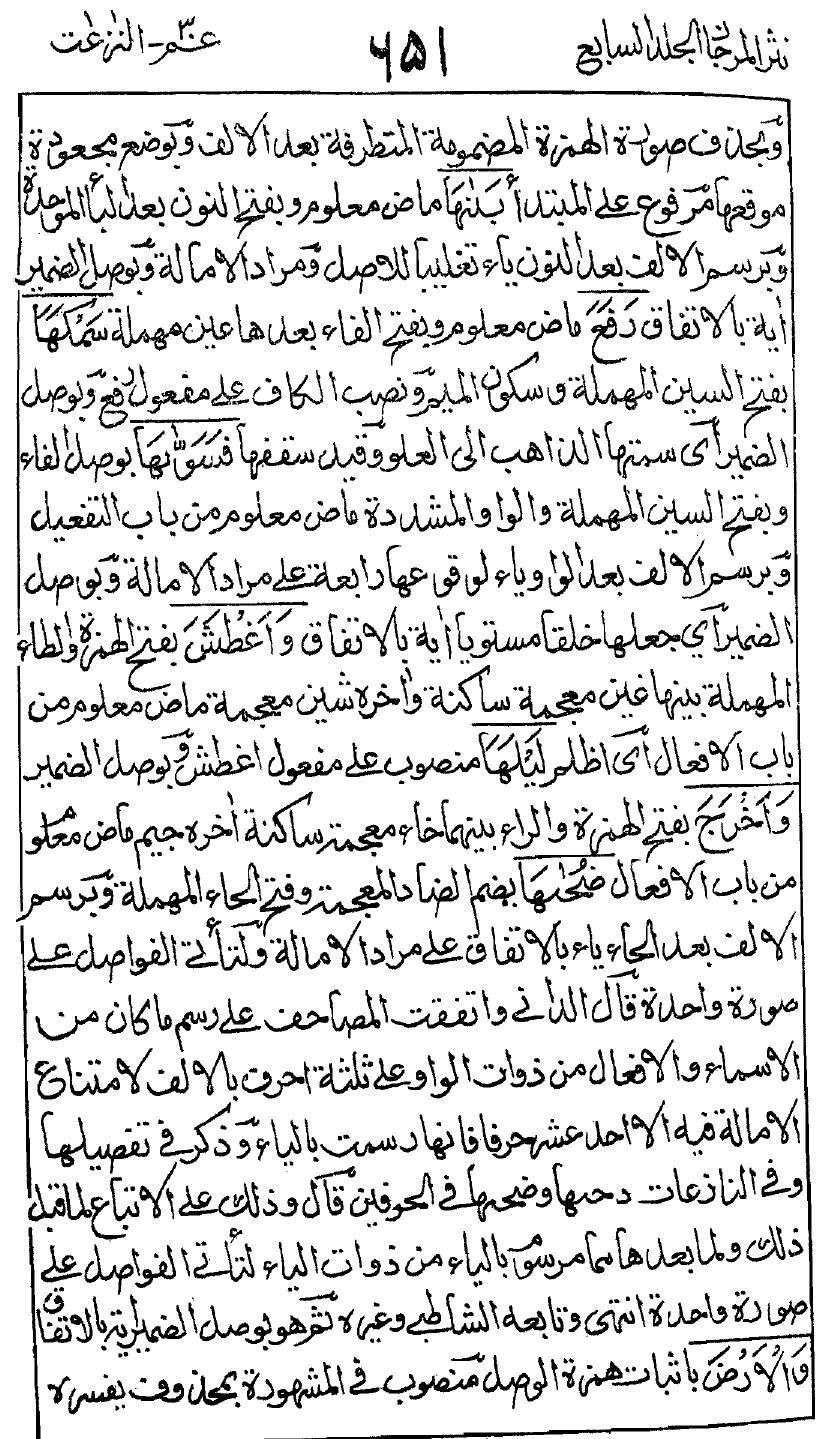 نثر المرجان الجلد السابع ۶۵۱ عمّ - النزعت
وبحذف صورة الهمزة المضمومة المتطرفة بعد الالف وبوضع مجعودة
موقعها مرفوع على المبتدا بَنٰىهَا ماض معلوم وبفتح النون بعد الباء الموحدة
وبرسم الالف بعد النون ياء تغليبا للاصل ومراد الامالة وبوصل الضمير
اٰية بالاتفاق رَفَعَ ماض معلوم وبفتح الفاء بعدها عين مهملة سَمْكَهَا
بفتح السين المهملة وسكون الميم ونصب الكاف على مفعول رفع وبوصل
الضمير اى سمتها الذاهب الى العلو وقيل سقفها فَسَوّٰىهَا بوصل الفاء
وبفتح السين المهملة والواو المشددة ماض معلوم من باب التفعيل
وبرسم الالف بعد الواو ياء لوقوعها رابعة على مراد الامالة وبوصل
الضمير اي جعلها خلقا مستويا اٰية بالاتفاق وَاَغْطَشَ بفتح الهمزة والطاء
المهملة بينها غين معجمة ساكنة واٰخره شين معجمة ماض معلوم من
باب الافعال اى اظلم لَيْلَهَا منصوب على مفعول اغطش وبوصل الضمير
وَاَخْرَجَ بفتح الهمزة والراء بينهما خاء معجمة ساكنة اٰخره جيم ماض معلوم
من باب الافعال ضُحٰىهَا بضم الضاد المعجمة وفتح الحاء المهملة وبرسم
الالف بعد الحاء ياء بالاتفاق على مراد الامالة ولتأتى الفواصل على
صورة واحدة قال الدانى واتفقت المصاحف على رسم ما كان من
الاسماء والافعال من ذوات الواو على ثلثة احرف بالالف لامتناع
الامالة فيه الا احد عشر حرفا فانها رسمت بالياء وذكر فى تفصيلها
وفى النازعات دحىها وضحىها فى الحرفين قال وذلك على الاتباع لما قبل
ذلك ولما بعدها مما مرسوم بالياء من ذوات الياء لتأتى الفواصل على
صورة واحدة انتهى وتابعه الشاطبى وغيره ثم هو بوصل الضمير اٰية بالاتفاق
وَالْاَرْضَ باثبات همزة الوصل منصوب فى المشهورة بمحذوف يفسره